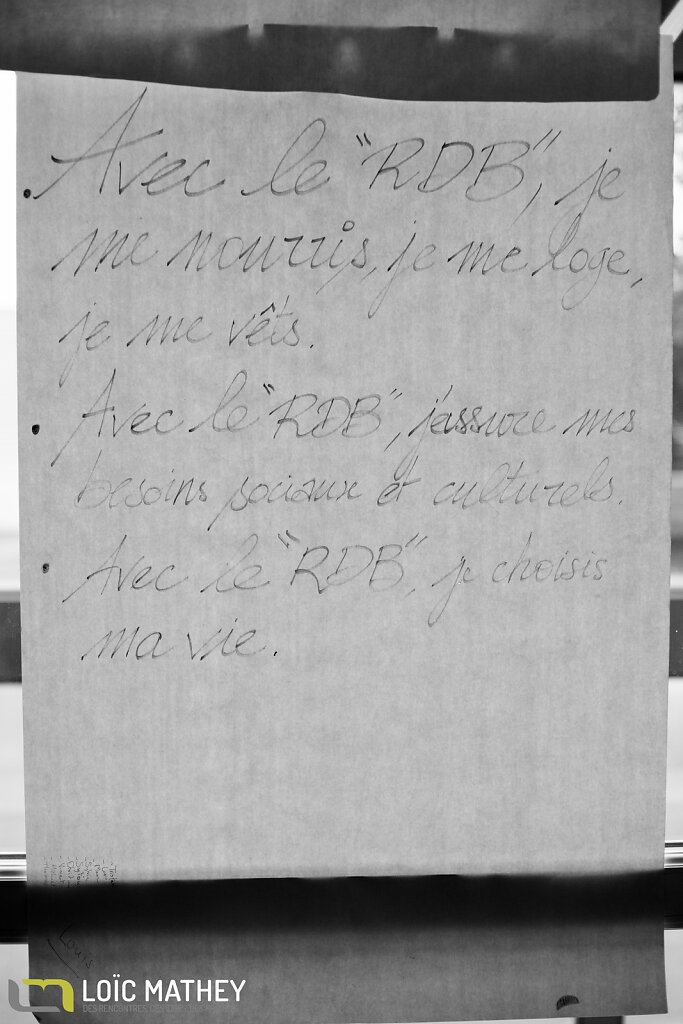 • Avec le "RDB", je
me nourris, je me loge,
je me vêts.
• Avec le "RDB", j'assure mes
besoins sociaux et culturels.
• Avec le "RDB", je choisis
ma vie.
Louis
LOÏC MATHEY
DES RENCONTRES, DES